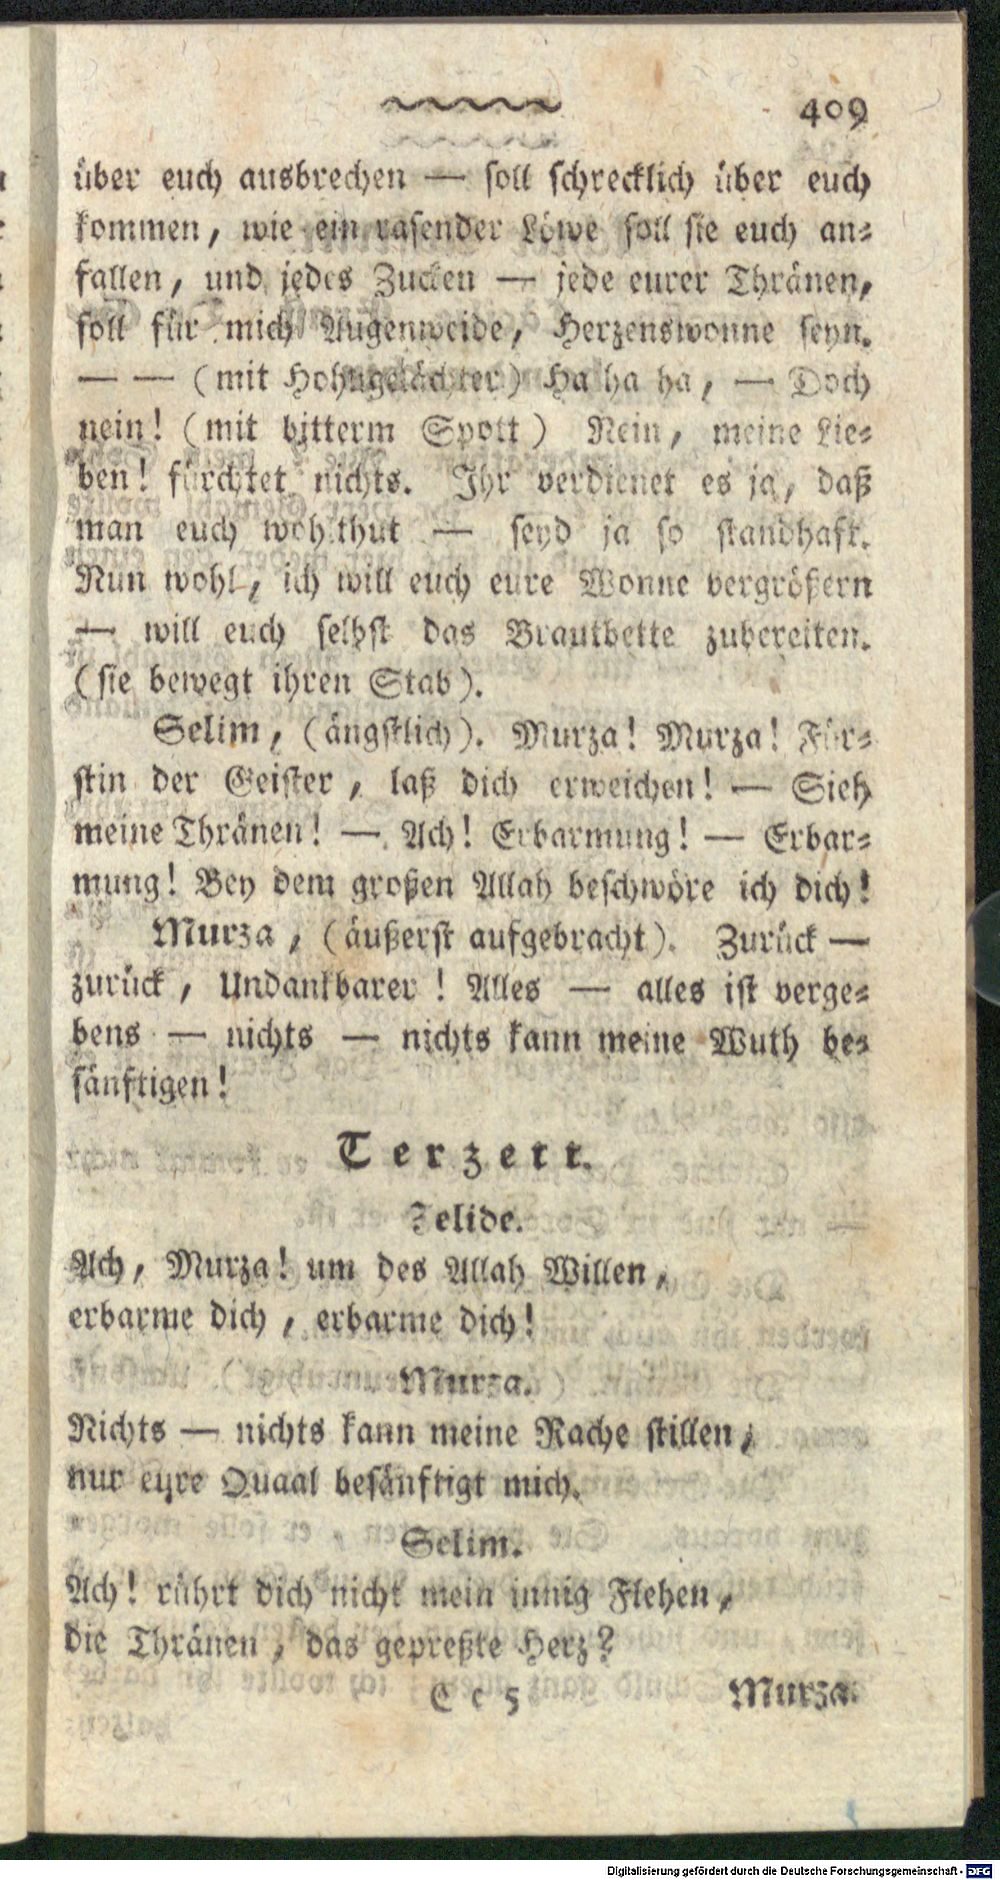 409
über euch ausbrechen — soll schrecklich über euch
kommen, wie ein rasender Löwe soll sie euch an-
fallen, und jedes Zucken — jede eurer Thränen,
soll für mich Augenweide, Herzenswonne seyn.
— — (mit Hohngelächter) Ha ha ha, — Doch
nein! (mit bitterm Spott) Nein, meine Lie-
ben! fürchtet nichts. Ihr verdienet es ja, daß
man euch wohlthut — seyd ja so standhaft.
Nun wohl, ich will euch eure Wonne vergrößern
— will euch selbst das Brautbette zubereiten.
(sie bewegt ihren Stab).
Selim, (ängstlich). Murza! Murza! Für-
stin der Geister, laß dich erweichen! — Sieh
meine Thränen! — Ach! Erbarmung! — Erbar-
mung! Bey dem großen Allah beschwöre ich dich!
Murza, (äußerst aufgebracht). Zurück —
zurück, Undankbarer! Alles — alles ist verge-
bens — nichts — nichts kann meine Wuth be-
sänftigen!
Terzett.
Zelide.
Ach, Murza! um des Allah Willen,
erbarme dich, erbarme dich!
Murza.
Nichts — nichts kann meine Rache stillen,
nur eure Quaal besänftigt mich.
Selim.
Ach! rührt dich nicht mein innig Flehen,
die Thränen, das gepreßte Herz?
C c 5 Murza.
Digitalisierung gefördert durch die Deutsche Forschungsgemeinschaft - DFG